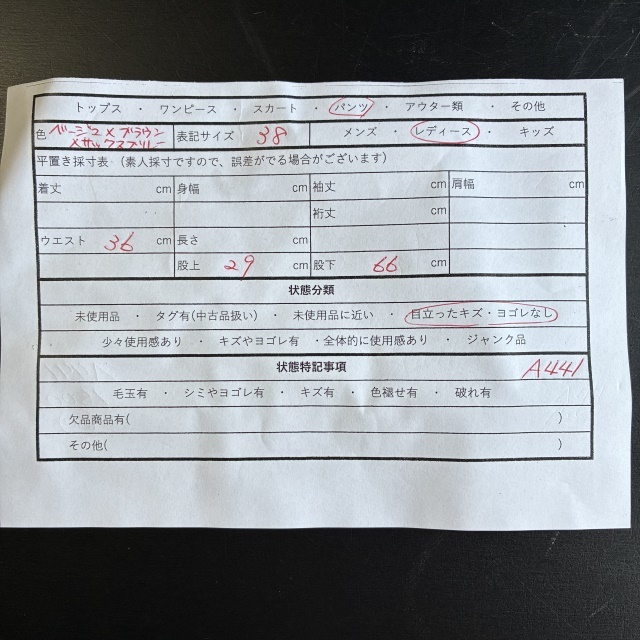 トップス ・ ワンピース ・ スカート ・ パンツ ・ アウター類 ・ その他
色 ベージュ×ブラウン×サックスブルー 表記サイズ 38 メンズ ・ レディース ・ キッズ
平置き採寸表（素人採寸ですので、誤差がでる場合がございます）
着丈 cm 身幅 cm 袖丈 cm 肩幅 cm
裄丈 cm
ウエスト 36 cm 長さ cm
股上 29 cm 股下 66 cm
状態分類
未使用品 ・ タグ有(中古品扱い) ・ 未使用品に近い ・ 目立ったキズ・ヨゴレなし
少々使用感あり ・ キズやヨゴレ有 ・全体的に使用感あり ・ ジャンク品
状態特記事項 A441
毛玉有 ・ シミやヨゴレ有 ・ キズ有 ・ 色褪せ有 ・ 破れ有
欠品商品有( )
その他( )